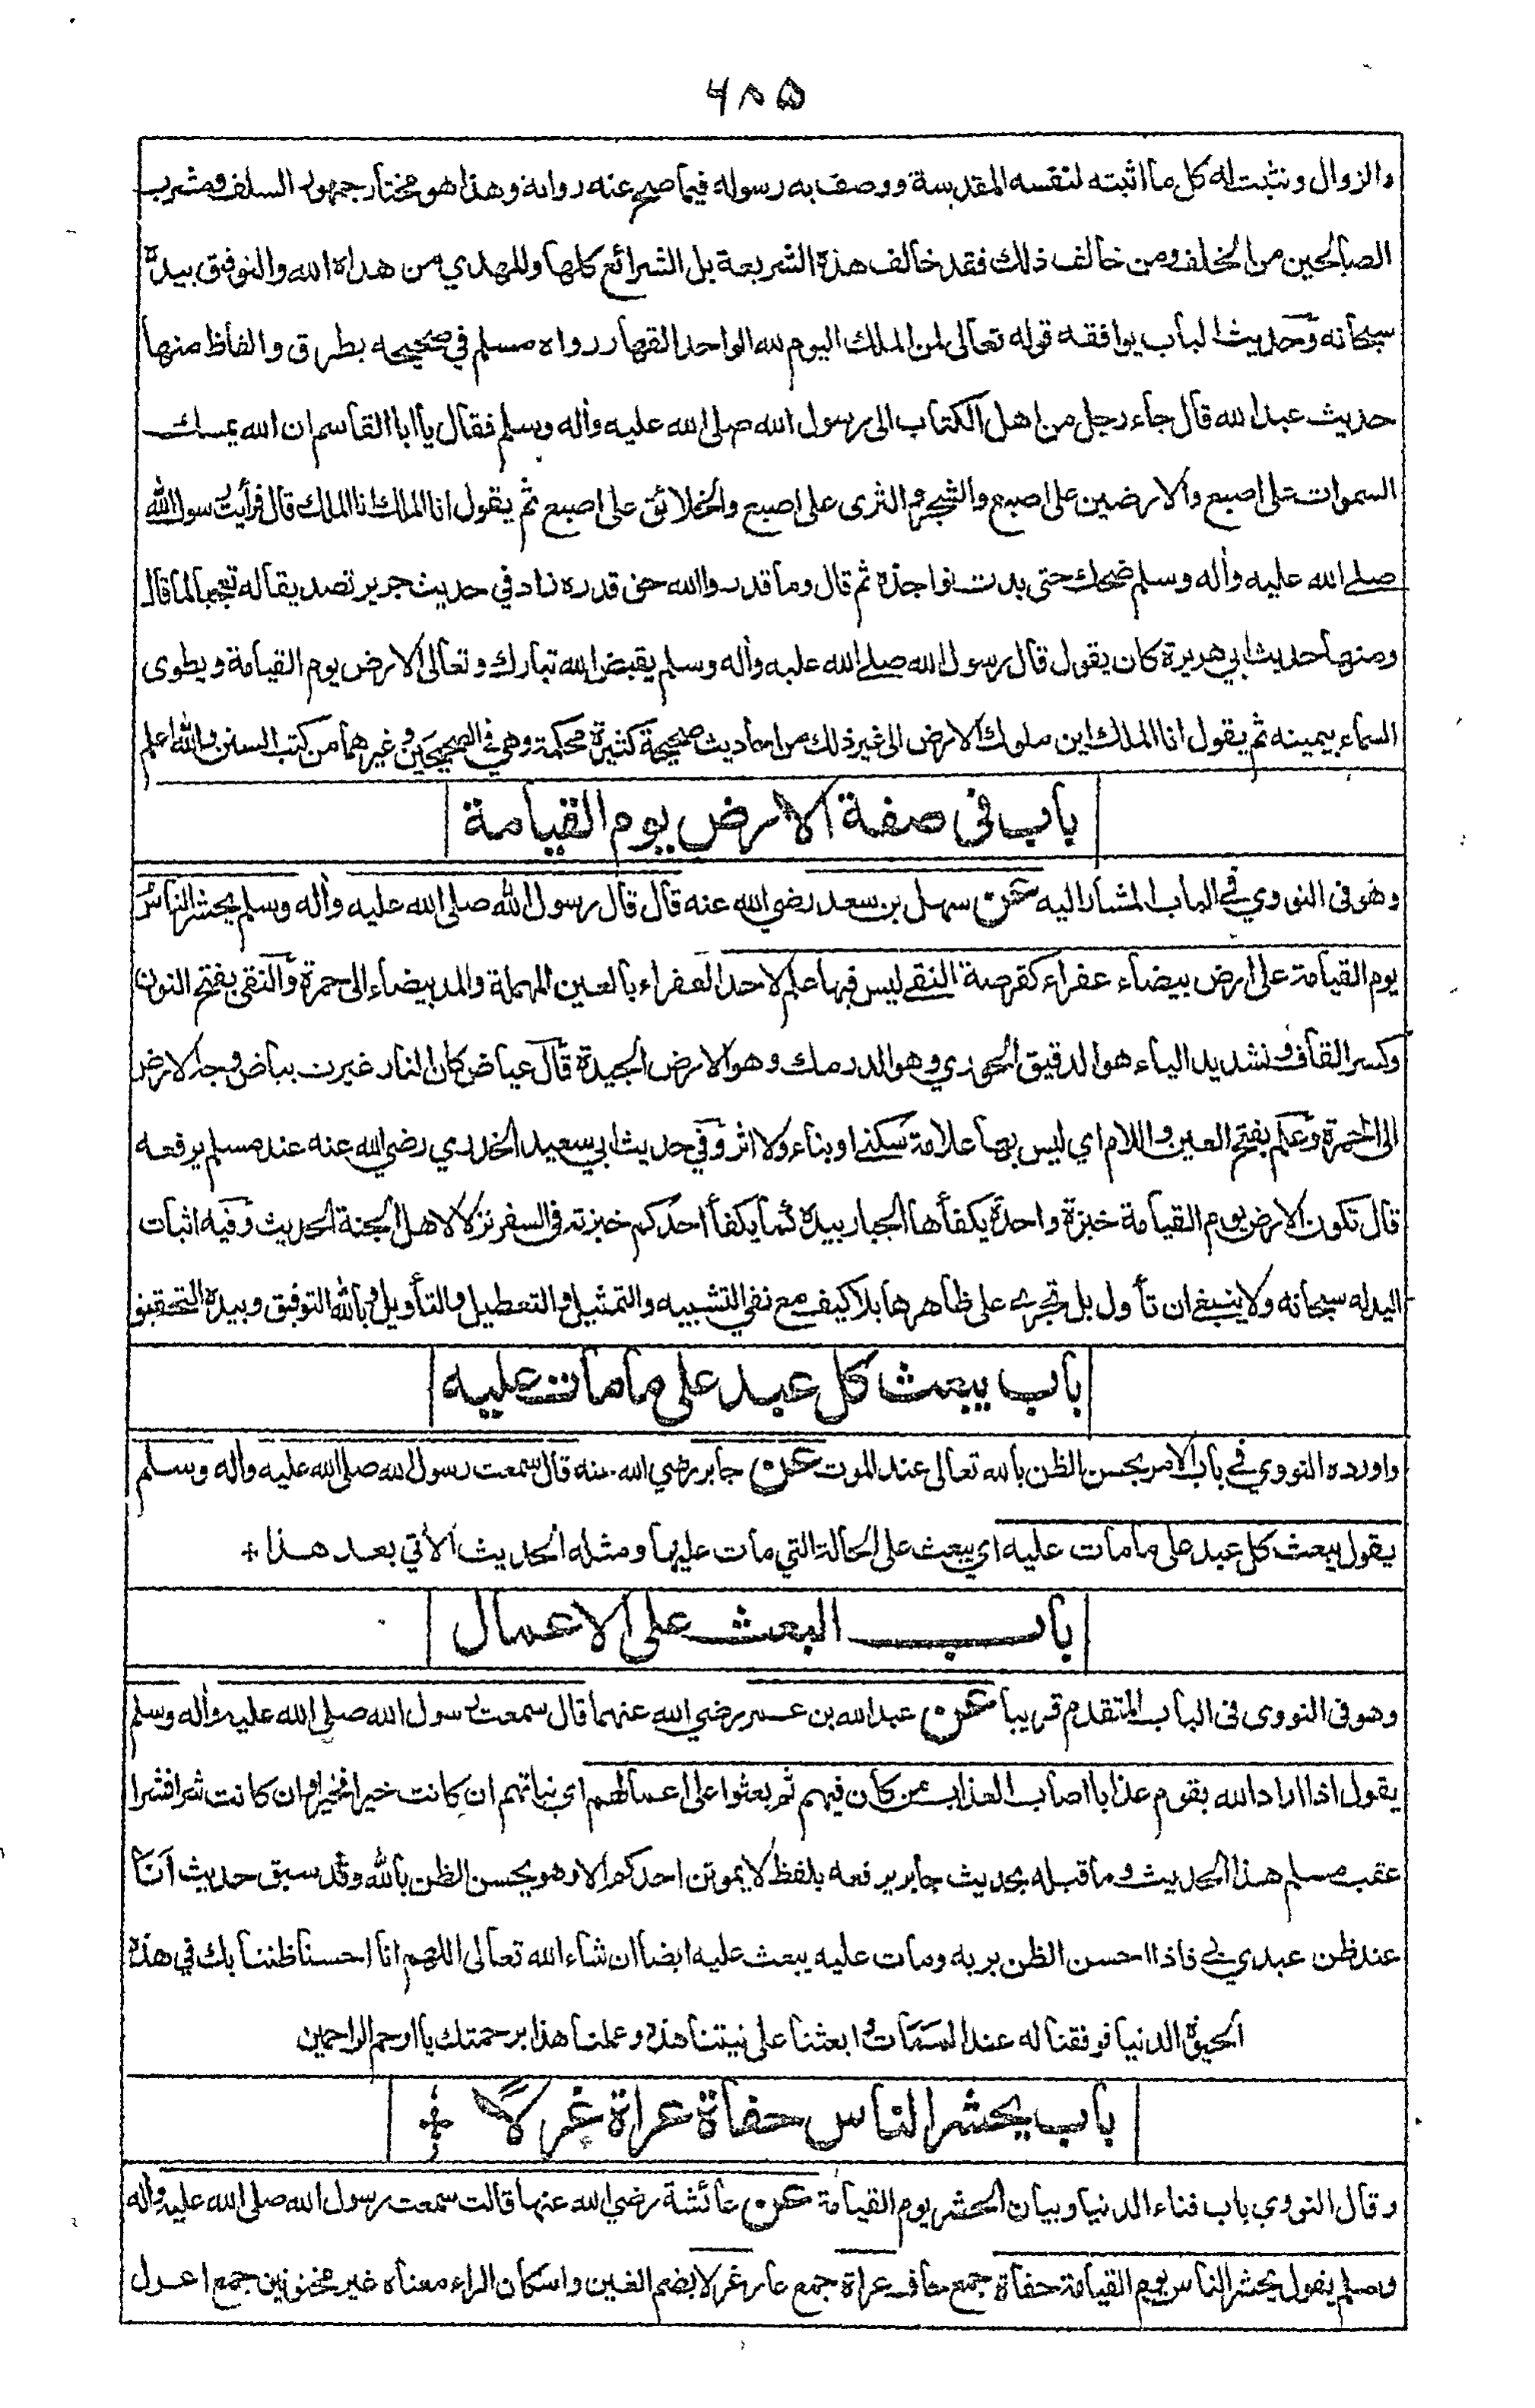 ٦٨٥
والزوال ونثبت له كل ما اثبته لنفسه المقدسة ووصف به رسوله فيما صح عنه رواية وهذا هو مختار جمهور السلف ومشرب
الصالحين من الخلف ومن خالف ذلك فقد خالف هذه الشريعة بل الشرائع كلها والمهدي من هداه الله والتوفيق بيده
سبحانه وحديث الباب يوافقه قوله تعالى لمن الملك اليوم لله الواحد القهار رواه مسلم في صحيحه بطرق والفاظ منها
حديث عبد الله قال جاء رجل من اهل الكتاب الى رسول الله صلى الله عليه وأله وسلم فقال يا أبا القاسم ان الله يمسك
السموات على اصبع والارضين على اصبع والشجر والثرى على اصبع والخلائق على اصبع ثم يقول انا الملك انا الملك قال فرأيت رسول الله
صلى الله عليه وأله وسلم ضحك حتى بدت نواجذه ثم قال وما قدروا الله حق قدره زاد في حديث جرير تصديقا له تعجبا لما قال
ومنها حديث ابي هريرة كان يقول قال رسول الله صلى الله عليه وأله وسلم يقبض الله تبارك وتعالى الارض يوم القيامة ويطوى
السماء بيمينه ثم يقول انا الملك اين ملوك الارض الى غير ذلك من احاديث صحيحة كثيرة محكمة وهي في الصحيحين وغيرهما من كتب السنن والله اعلم
باب في صفة الارض يوم القيامة
وهو في النووي في الباب المشار اليه عن سهل بن سعد رضي الله عنه قال قال رسول الله صلى الله عليه وأله وسلم يحشر الناس
يوم القيامة على ارض بيضاء عفراء كقرصة النقي ليس فيها علم لاحد العفراء بالعين المهملة والمد بيضاء الى حمرة والنقي بفتح النون
وكسر القاف وتشديد الياء هو الدقيق الحوري وهو الدرمك وهو الارض الجيدة قال عياض كان النار غيرت بياض وجه الارض
الى الحمرة وعلم بفتح العين واللام اي ليس بها علامة سكنى او بناء ولا اثر وفي حديث ابي سعيد الخدري رضي الله عنه عند مسلم يرفعه
قال تكون الارض يوم القيامة خبزة واحدة يكفأها الجبار بيده كما يكفأ احدكم خبزته في السفر نزلا لاهل الجنة الحديث وفيه اثبات
اليد له سبحانه ولا ينبغي ان تأول بل تجرى على ظاهرها بلا كيف مع نفي التشبيه والتمثيل والتعطيل والتأويل وبالله التوفيق وبيده التحقيق
باب يبعث كل عبد على ما مات عليه
واورده النووي في باب الامر بحسن الظن بالله تعالى عند الموت عن جابر رضي الله عنه قال سمعت رسول الله صلى الله عليه وأله وسلم
يقول يبعث كل عبد على ما مات عليه اي يبعث على الحالة التي مات عليها ومثله الحديث الأتي بعد هذا
باب البعث على الاعمال
وهو في النووي في الباب المتقدم قريبا عن عبد الله بن عمر رضي الله عنهما قال سمعت رسول الله صلى الله عليه وأله وسلم
يقول اذا اراد الله بقوم عذابا اصاب العذاب من كان فيهم ثم بعثوا على اعمالهم اي نياتهم ان كانت خيرا فخيرا وان كانت شرا فشرا
عقب مسلم هذا الحديث وما قبله بحديث جابر يرفعه بلفظ لا يموتن احدكم الا وهو يحسن الظن بالله وقد سبق حديث انا
عند ظن عبدي بي فاذا احسن الظن بربه ومات عليه يبعث عليه ايضا ان شاء الله تعالى اللهم انا احسنا ظننا بك في هذه
الحيوة الدنيا فوفقنا له عند الممات وابعثنا على نيتنا هذه وعملنا هذا برحمتك يا ارحم الراحمين
باب يحشر الناس حفاة عراة غرلا
وقال النووي باب فناء الدنيا وبيان الحشر يوم القيامة عن عائشة رضي الله عنها قالت سمعت رسول الله صلى الله عليه وأله
وسلم يقول يحشر الناس يوم القيامة حفاة جمع حاف عراة جمع عار غرلا بضم الغين واسكان الراء معناه غير مختونين جمع اغرل